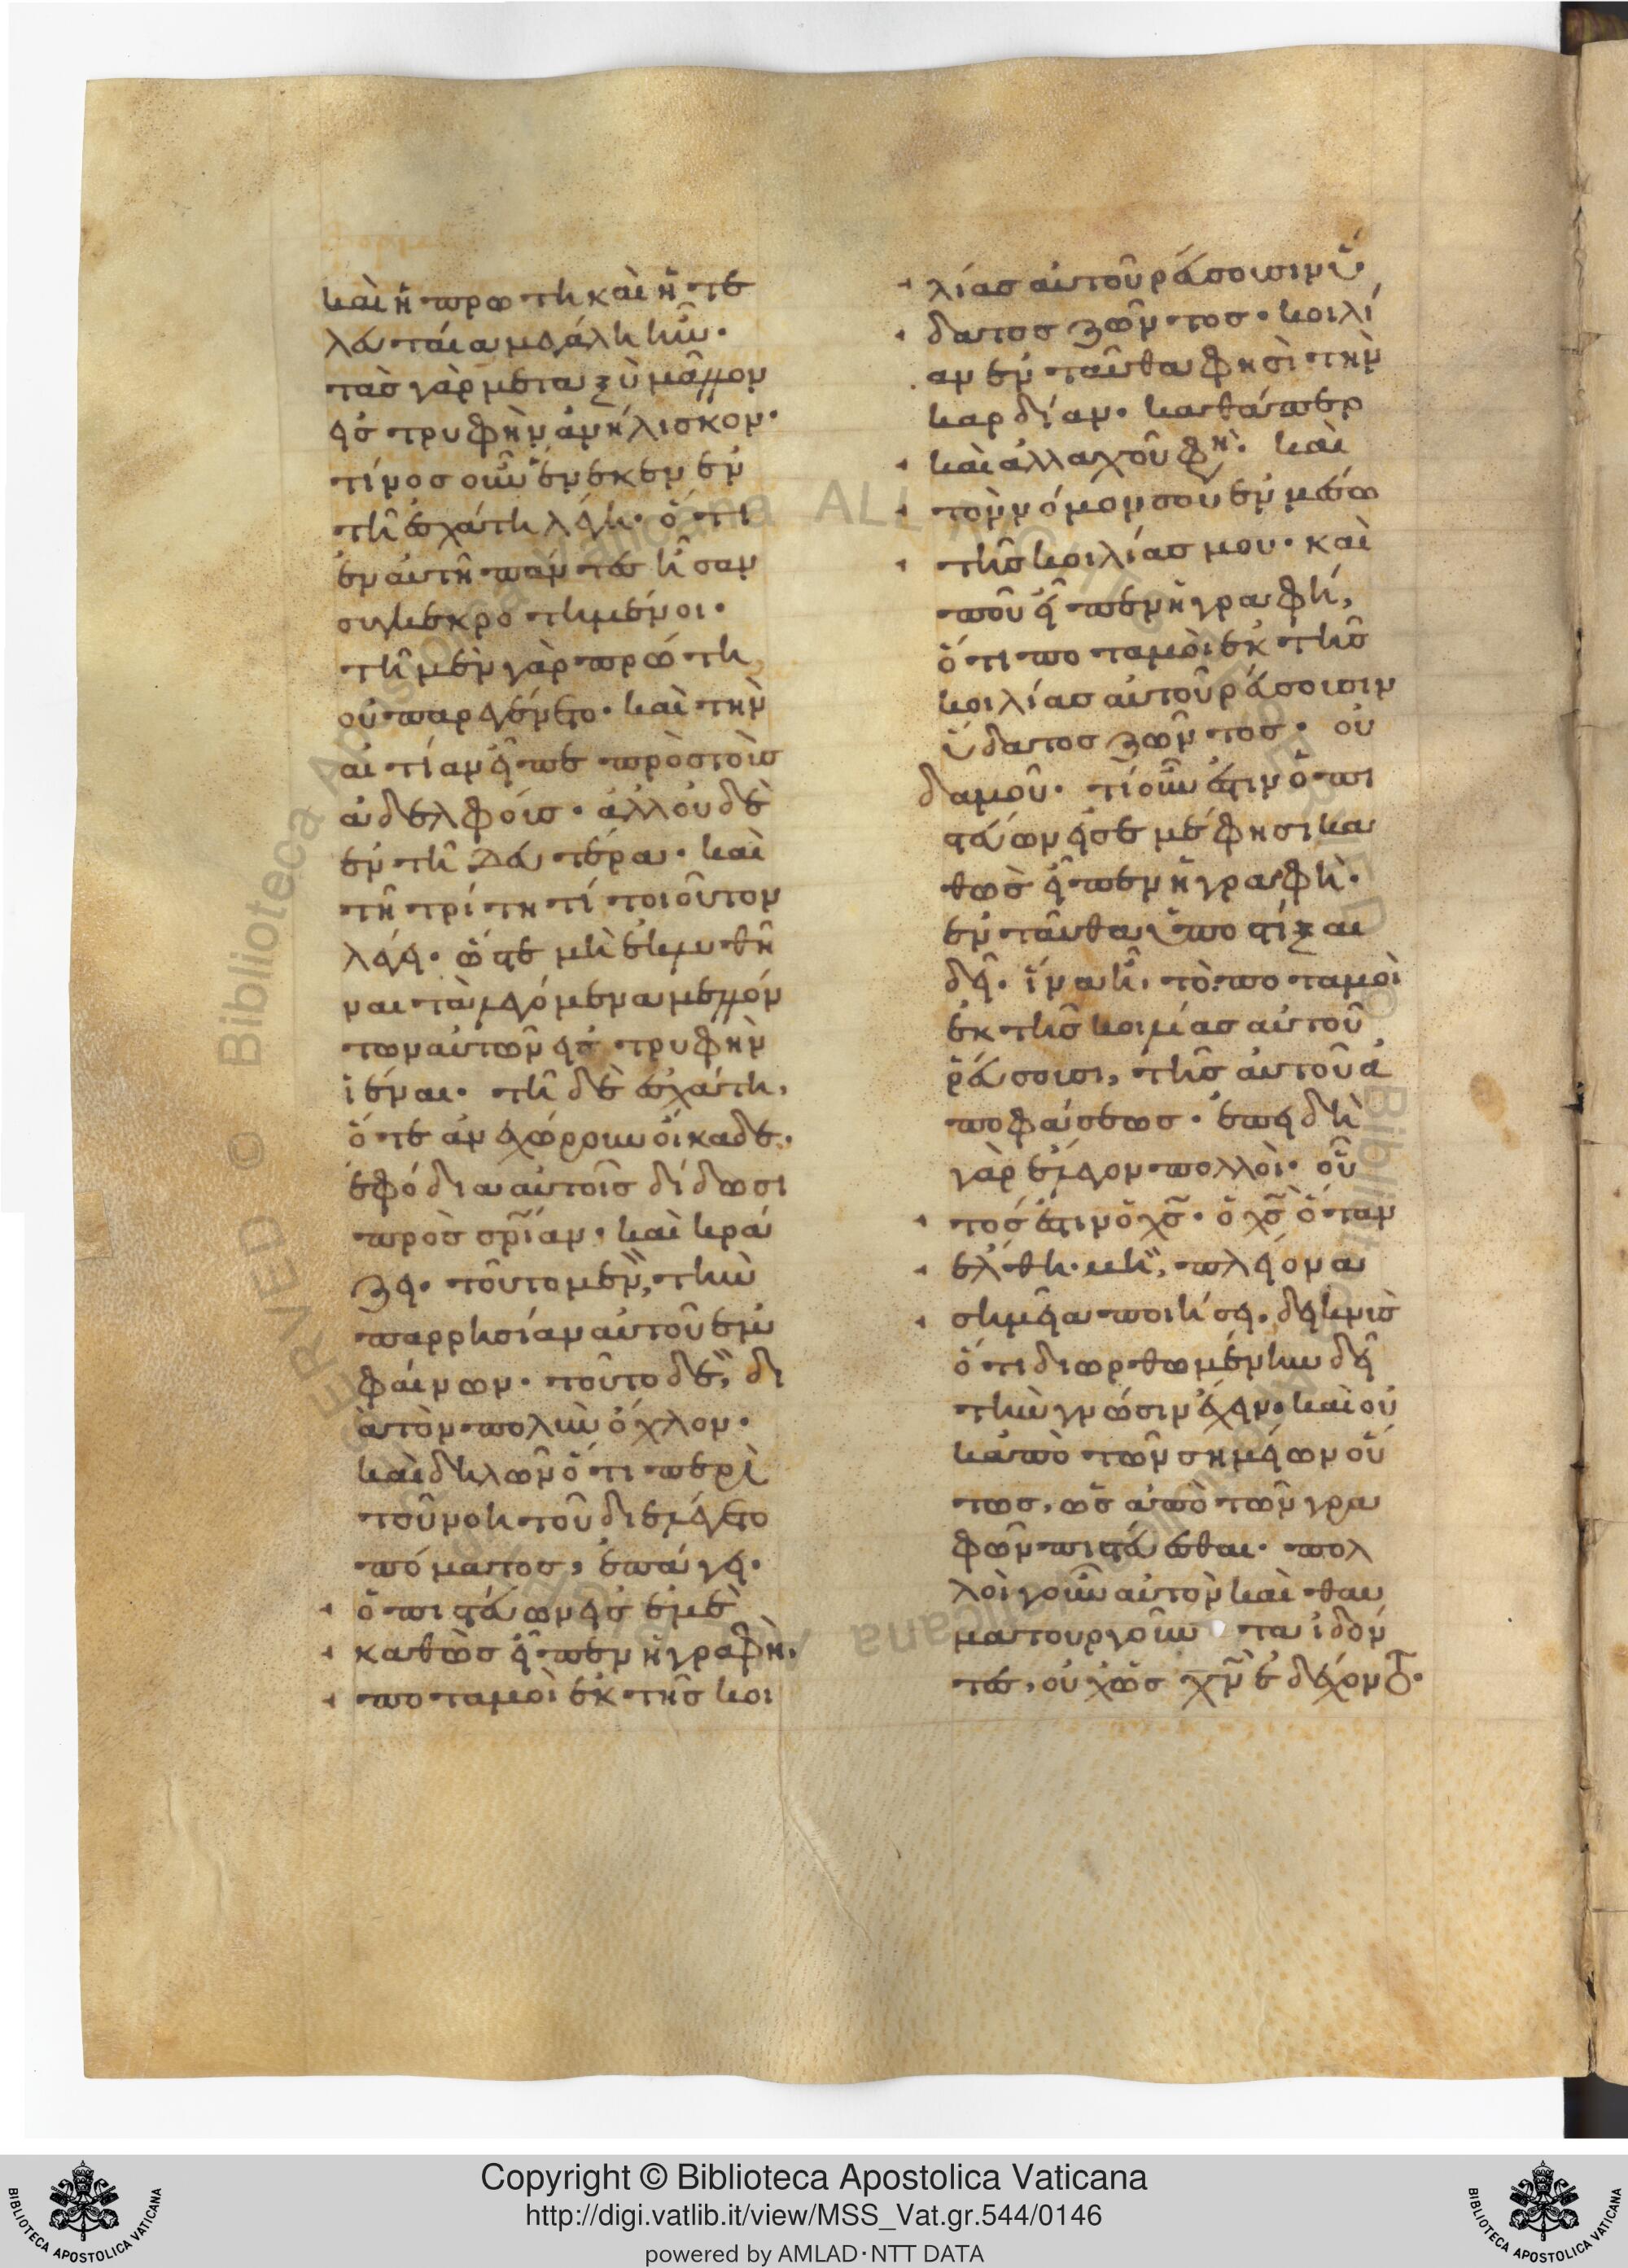 καὶ ἡ πρώτη καὶ ἡ τε
λευταία μεγάλη ἦν·
τὰς γὰρ μεταξὺ μᾶλλον
εἰς τρυφὴν ἀνήλισκον·
τίνος οὖν ἕνεκεν ἐν
τῆ ἐσχάτη λέγει· ὅτι
ἐν αὐτῆ πάντες ἦσαν
συγκεκροτημένοι·
τῆ μὲν γὰρ πρώτη
οὐ παρεγένετο· καὶ τὴν
αἰτίαν εἶπε πρὸς τοὺς
ἀδελφούς· ἀλλ' οὐδὲ
ἐν τῆ δευτέρα· καὶ
τῆ τρίτη τί τοιοῦτον
λέγει· ὥστε μὴ ἐκχυθῆ
ναι τὰ λεγόμενα μελλόν
των αὐτῶν εἰς τρυφὴν
ἰέναι· τῆ δὲ ἐσχάτη,
ὅτε ἀνεχώρουν οἴκαδε·
ἐφόδια αὐτοῖς δίδωσι
πρὸς σρίαν· καὶ κρά
ζει· τοῦτο μὲν, τὴν
παρρησίαν αὐτοῦ ἐμ
φαίνων· τοῦτο δὲ, δι
ὰ τὸν πολὺν ὄχλον·
καὶ δηλῶν ὅτι περὶ
τοῦ νοητοῦ διελέγετο
πόματος, ἐπάγει·
ὁ πιστεύων εἰς ἐμὲ
καθὼς εἶπεν ἡ γραφὴ,
ποταμοὶ ἐκ τῆς κοι
λίας αὐτοῦ ῥεύσουσιν ὕ
δατος ζῶντος· κοιλί
αν ἐνταῦθα φησὶ τὴν
καρδίαν· καθάπερ
καὶ ἀλλαχοῦ φη· καὶ
τὸν νόμον σου ἐν μέσω
τῆς κοιλίας μου· καὶ
ποῦ εἶπεν ἡ γραφή,
ὅτι ποταμοὶ ἐκ τῆς
κοιλίας αὐτοῦ ῥεύσουσιν
ὕδατος ζῶντος· οὐ
δαμοῦ· τί οὖν ἐστιν ὁ πι
στεύων εἰς ἐμέ φησι κα
θὼς εἶπεν ἡ γραφὴ·
ἐνταῦθα ὑποστίξαι
δεῖ· ἵνα ἦ, τὸ ποταμοὶ
ἐκ τῆς κοιλίας αὐτοῦ
ῥεύσουσι, τῆς αὐτοῦ ἀ
ποφάσεως· ἐπειδὴ
γὰρ ἔλεγον πολλοὶ· οὗ
τός ἐστιν ὁ χς· ὁ χς ὅταν
ἔλθη· μὴ πλείονα
σημεῖα ποιήσει· δείκνυσιν
ὅτι διωρθωμένην δεῖ
τὴν γνῶσιν ἔχειν· καὶ οὐ
κ ἀπὸ τῶν σημείων οὕ
τως, ὡς ἀπὸ τῶν γρα
φῶν πιστεύεσθαι· πολ
λοὶ γοῦν αὐτὸν καὶ θαυ
ματουργοῦντα ἰδόν
τες, οὐχ ὡς χν ἐδέχοντο·
Copyright © Biblioteca Apostolica Vaticana
http://digi.vatlib.it/view/MSS_Vat.gr.544/0146
powered by AMLAD·NTT DATA
BIBLIOTECA APOSTOLICA VATICANA
BIBLIOTECA APOSTOLICA VATICANA